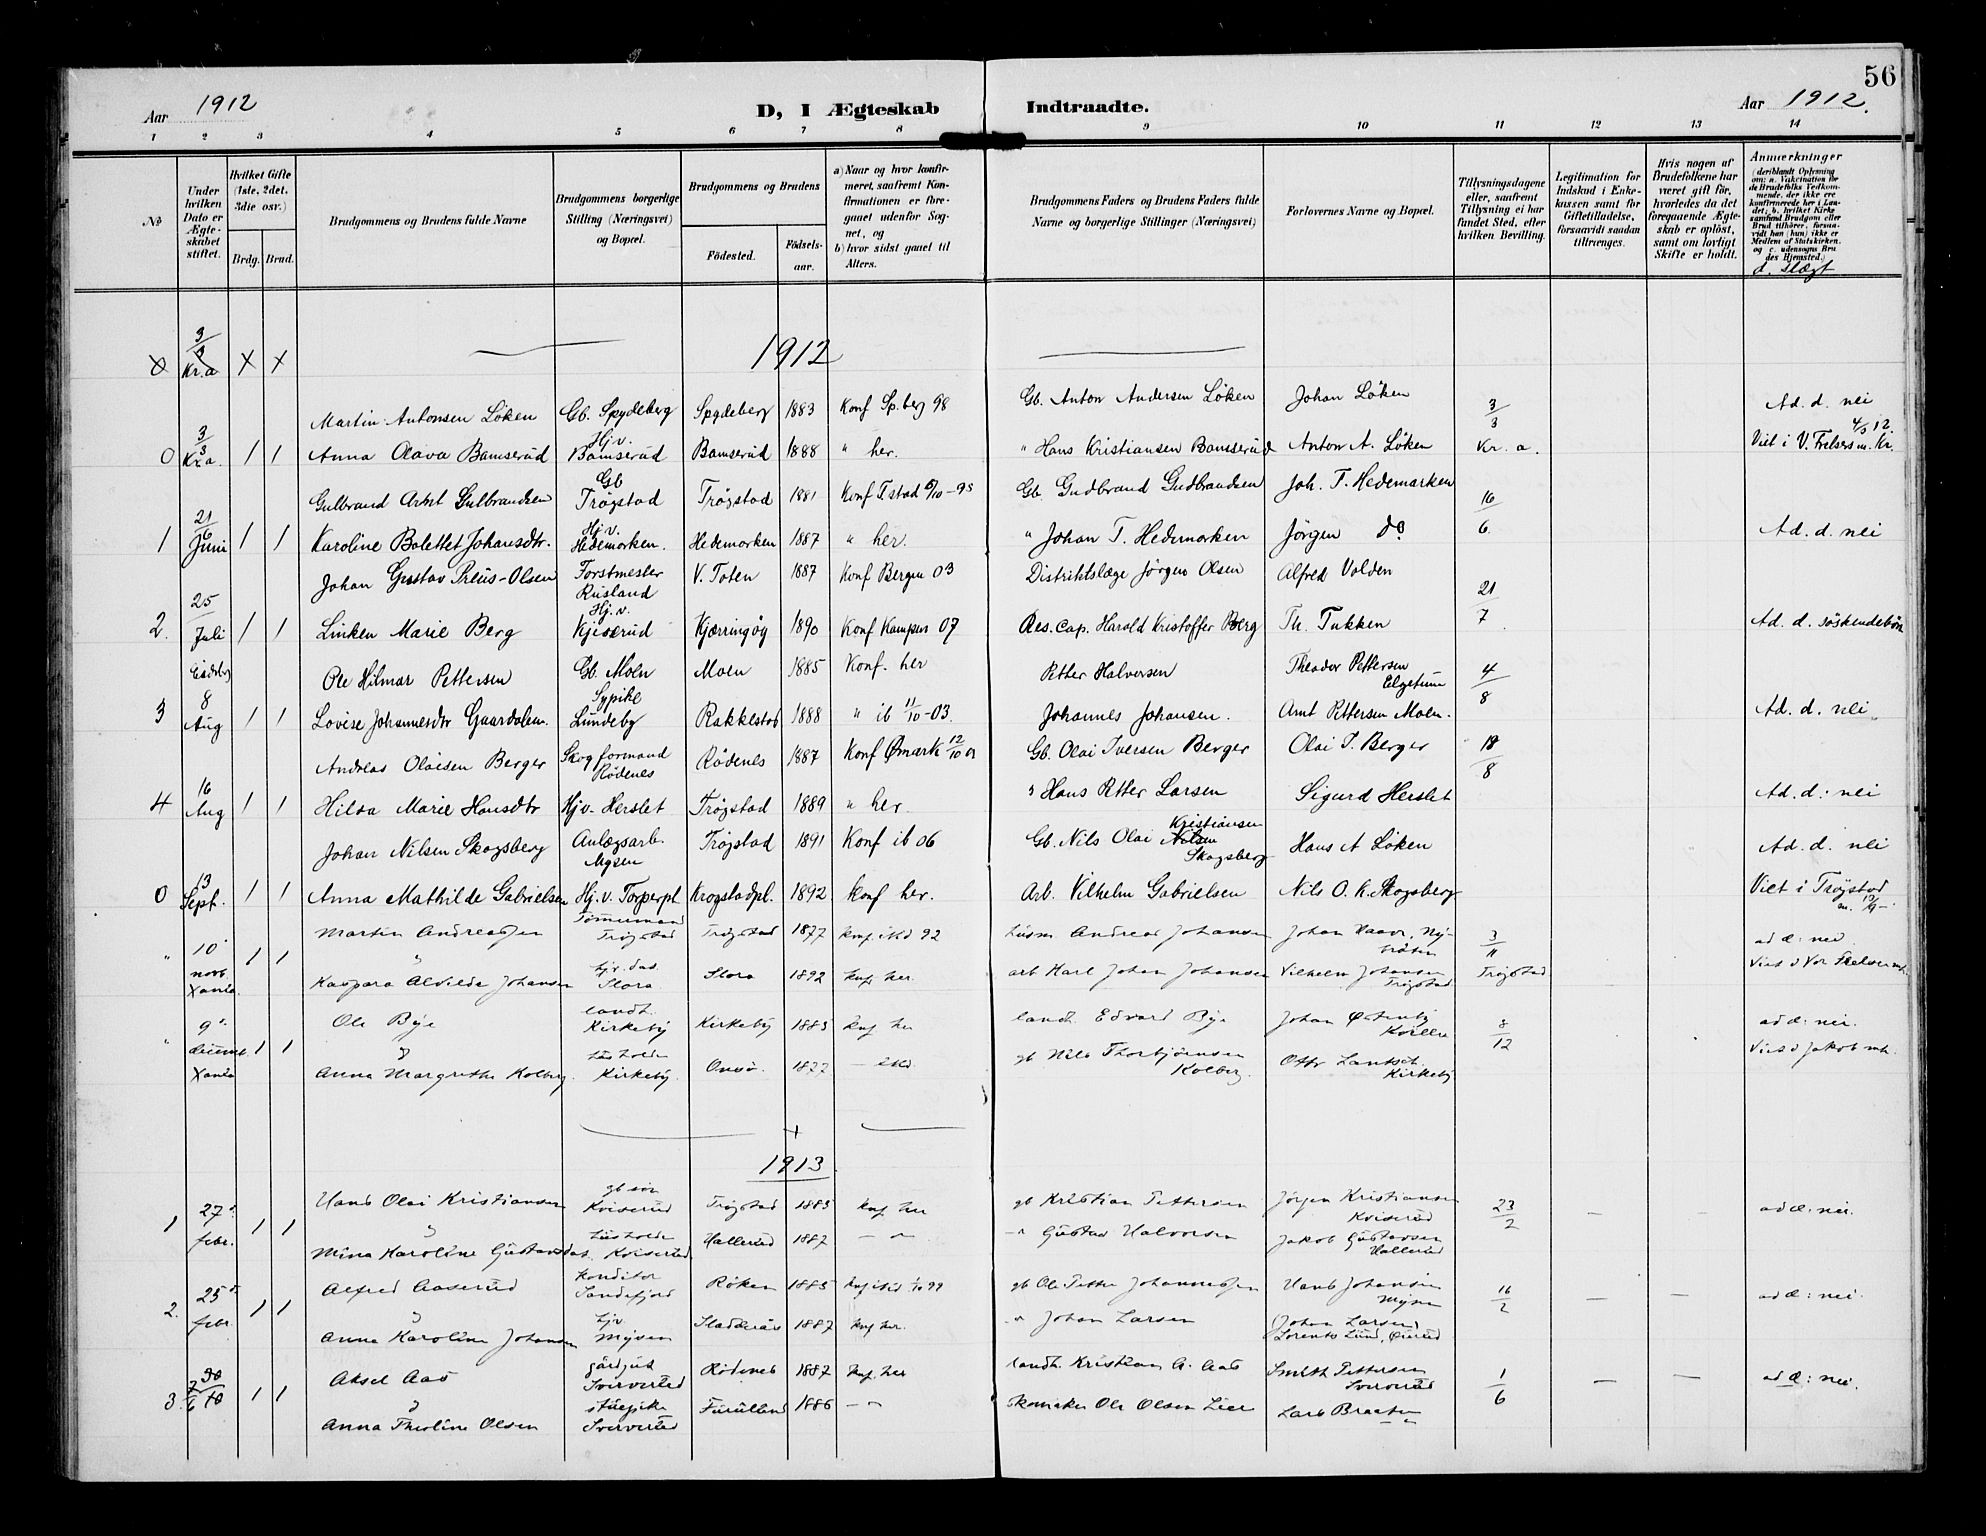 56
Aar 1912
D, I Ægteskab Indtraadte.
Aar 1912.
1 2 3 4 5 6 7 8 9 10 11 12 13 14
No
Under hvilken Dato er Ægteskabet stiftet.
Hvilket Gifte (1ste, 2det, 3die osv.)
Brdg. Brud.
Brudgommens og Brudens fulde Navne
Brudgommens borgerlige Stilling (Næringsvei) og Bopæl.
Brudgommens og Brudens
Födested. Födsels-aar.
a) Naar og hvor konfirmeret, saafremt Konfirmationen er foregaaet udenfor Sognet, og
b) hvor sidst gaaet til Alters.
Brudgommens Faders og Brudens Faders fulde Navne og borgerlige Stillinger (Næringsvei)
Forlovernes Navne og Bopæl.
Tillysningsdagene eller, saafremt Tillysning ei har fundet Sted, efter hvilken Bevilling.
Legitimation for Indskud i Enkekassen samt for Giftetilladelse, forsaavidt saadan tiltrænges.
Hvis nogen af Brudefolkene har været gift för, hvorledes da det foregaaende Ægteskab er oplöst, samt om lovligt Skifte er holdt.
Anmærkninger
(deriblandt Oplysning om: a. Vakcination for de Brudefolks Vedkommende, der ikke ere konfirmerede her i Landet; b. hvilket Kirkesamfund Brudgom eller Brud tilhörer, forsaavidt han (hun) ikke er Medlem af Statskirken, og c. udensogns Brudes Hjemsted.)
d. slægt
1912
3/3 Kr.a
Martin Antonsen Löken Gb. Spydeberg Spydeberg 1883 Konf Sp.berg 98 Gb. Anton Andersen Löken Johan Löken 3/3 Ad. d. nei
0 3/3 Kr.a. 1 1 Anna Olava Bamserud Hj.v. Bamserud Bamserud 1888 " her. " Hans Kristiansen Bamserud Anton A. Löken Kr. a. Viet i V. Frelsers m. Kr. 4/3 12.
Gulbrand Arnt Gulbrandsen Gb Trögstad Trögstad 1881 Konf T.stad 6/10-95 Gb. Gudbrand Gudbrandsen Joh. T. Hedemarken 16/6
1 21/6 Juni 1 1 Karoline Bolettet Johansdtr. Hj.v. Hedemarken. Hedemarken 1887 " her. " Johan T. Hedemarken Jörgen do Ad. d. nei
Johan Gustav Preus-Olsen Forstmester Rusland V. Toten 1887 Konf Bergen 03 Distriktslæge Jörgen Olsen Alfred Volden 21/7
2. 25/Juli 1 1 Linken Marie Berg Hj.v. Kjiserud Kjærringöy 1890 Konf Kampen 07 Res. Cap. Harald Kristoffer Berg Th. Tukken Ad. d. söskendebörn
Eidsberg
Ole Hilmar Pettersen Gb. Moen Moen 1885 Konf. her Petter Halvorsen Theodor Pettersen Elgetun 4/8
3 8 Aug 1 1 Lovise Johannesdtr Gaardalen. Sypike Lundeby Rakkestad 1888 " ib 11/10-03. Johannes Johansen. Arnt Pettersen Moen. Ad. d. nei
Andreas Olaisen Berger Skogformand Rödenes Rödenes 1887 Konf Ømark 12/10 01 Gb. Olai Iversen Berger Olai I. Berger 18/8
4 16 Aug 1 1 Hilda Marie Hansdtr Hj.v. Herslet Trögstad 1889 " her. " Hans Petter Larsen Sigurd Herslet Ad. d: nei
Johan Nilsen Skogsberg Anlægsarb. Mysen Trögstad 1891 Konf ib 06 Gb. Nils Olai Kristiansen Skogsberg Hans A Löken Ad. d. nei
0 13 Sept. 1 1 Anna Mathilde Gabrielsen Hj.v. Torperpl. Krogstadpl. 1892 Konf her. Arb. Vilhelm Gabrielsen Nils O. K. Skogsberg Viet i Trögstad
Martin Andreassen Tömmermand Trögstad Trögstad 1877 konf. istd 92 Husm Andreas Johansen Johan Haavr, 3/11 ad d: nei
" 10' novb. Xania. 1 1 Kaspara Alvilde Johansen hjv. das. Slora. Slora 1892 knf her. arb Karl Johan Johansen Vilhelm Johansen Trögstad Trögstad Viet i Vor Frelsers
Ole Bye landh. Kirkeby Kirkeby 1883 knf her landh. Edvard Bye Johan 8/12 ad d: nei.
" 9' decemb. Xania 1 1 Anna Margrethe Kolberg husholder Kirkeby. Onsö. 1877 — istd. gb Nils Thorbjörnsen Kolberg. Otto Kirkeby Viet i Jakob mk.
1913
Hans Olai Kristiansen gb sön Kviserud Trögstad 1883 knf her gb Kristian Pettersen Jörgen Kristiansen Kviserud 23/2 — — ad d: nei.
1 27' febr. 1 1 Mina Karoline Gustavsdas. husholder Kviserud Hallerud 1887 — " — " Gustav Halvorsen Jakob Gustavsen Hallerud
Alfred Aaserud Konditor Sandefjord Röken 1885 knf istd 1/10 99 gb Ole Petter Johannessen Hans Johansen Mysen 16/2 — — ad d: nei.
2. 25' febr 1 1 Anna Karoline Johansen hjv Mysen 1887 knf her. " Johan Larsen (Johan Larsen) Lorents Lund,
Aksel Aas gårdgut Sververud Rödenes 1887 knf. her landh. Kristian A. Aas Smith Pettersen Sververud 1/6 — — ad d: nei.
3. 1 1 Anna Theoline Olsen stuepike Sververud Furulund 1886 — " Skomaker Ole Olsen Lier Lars Braaten